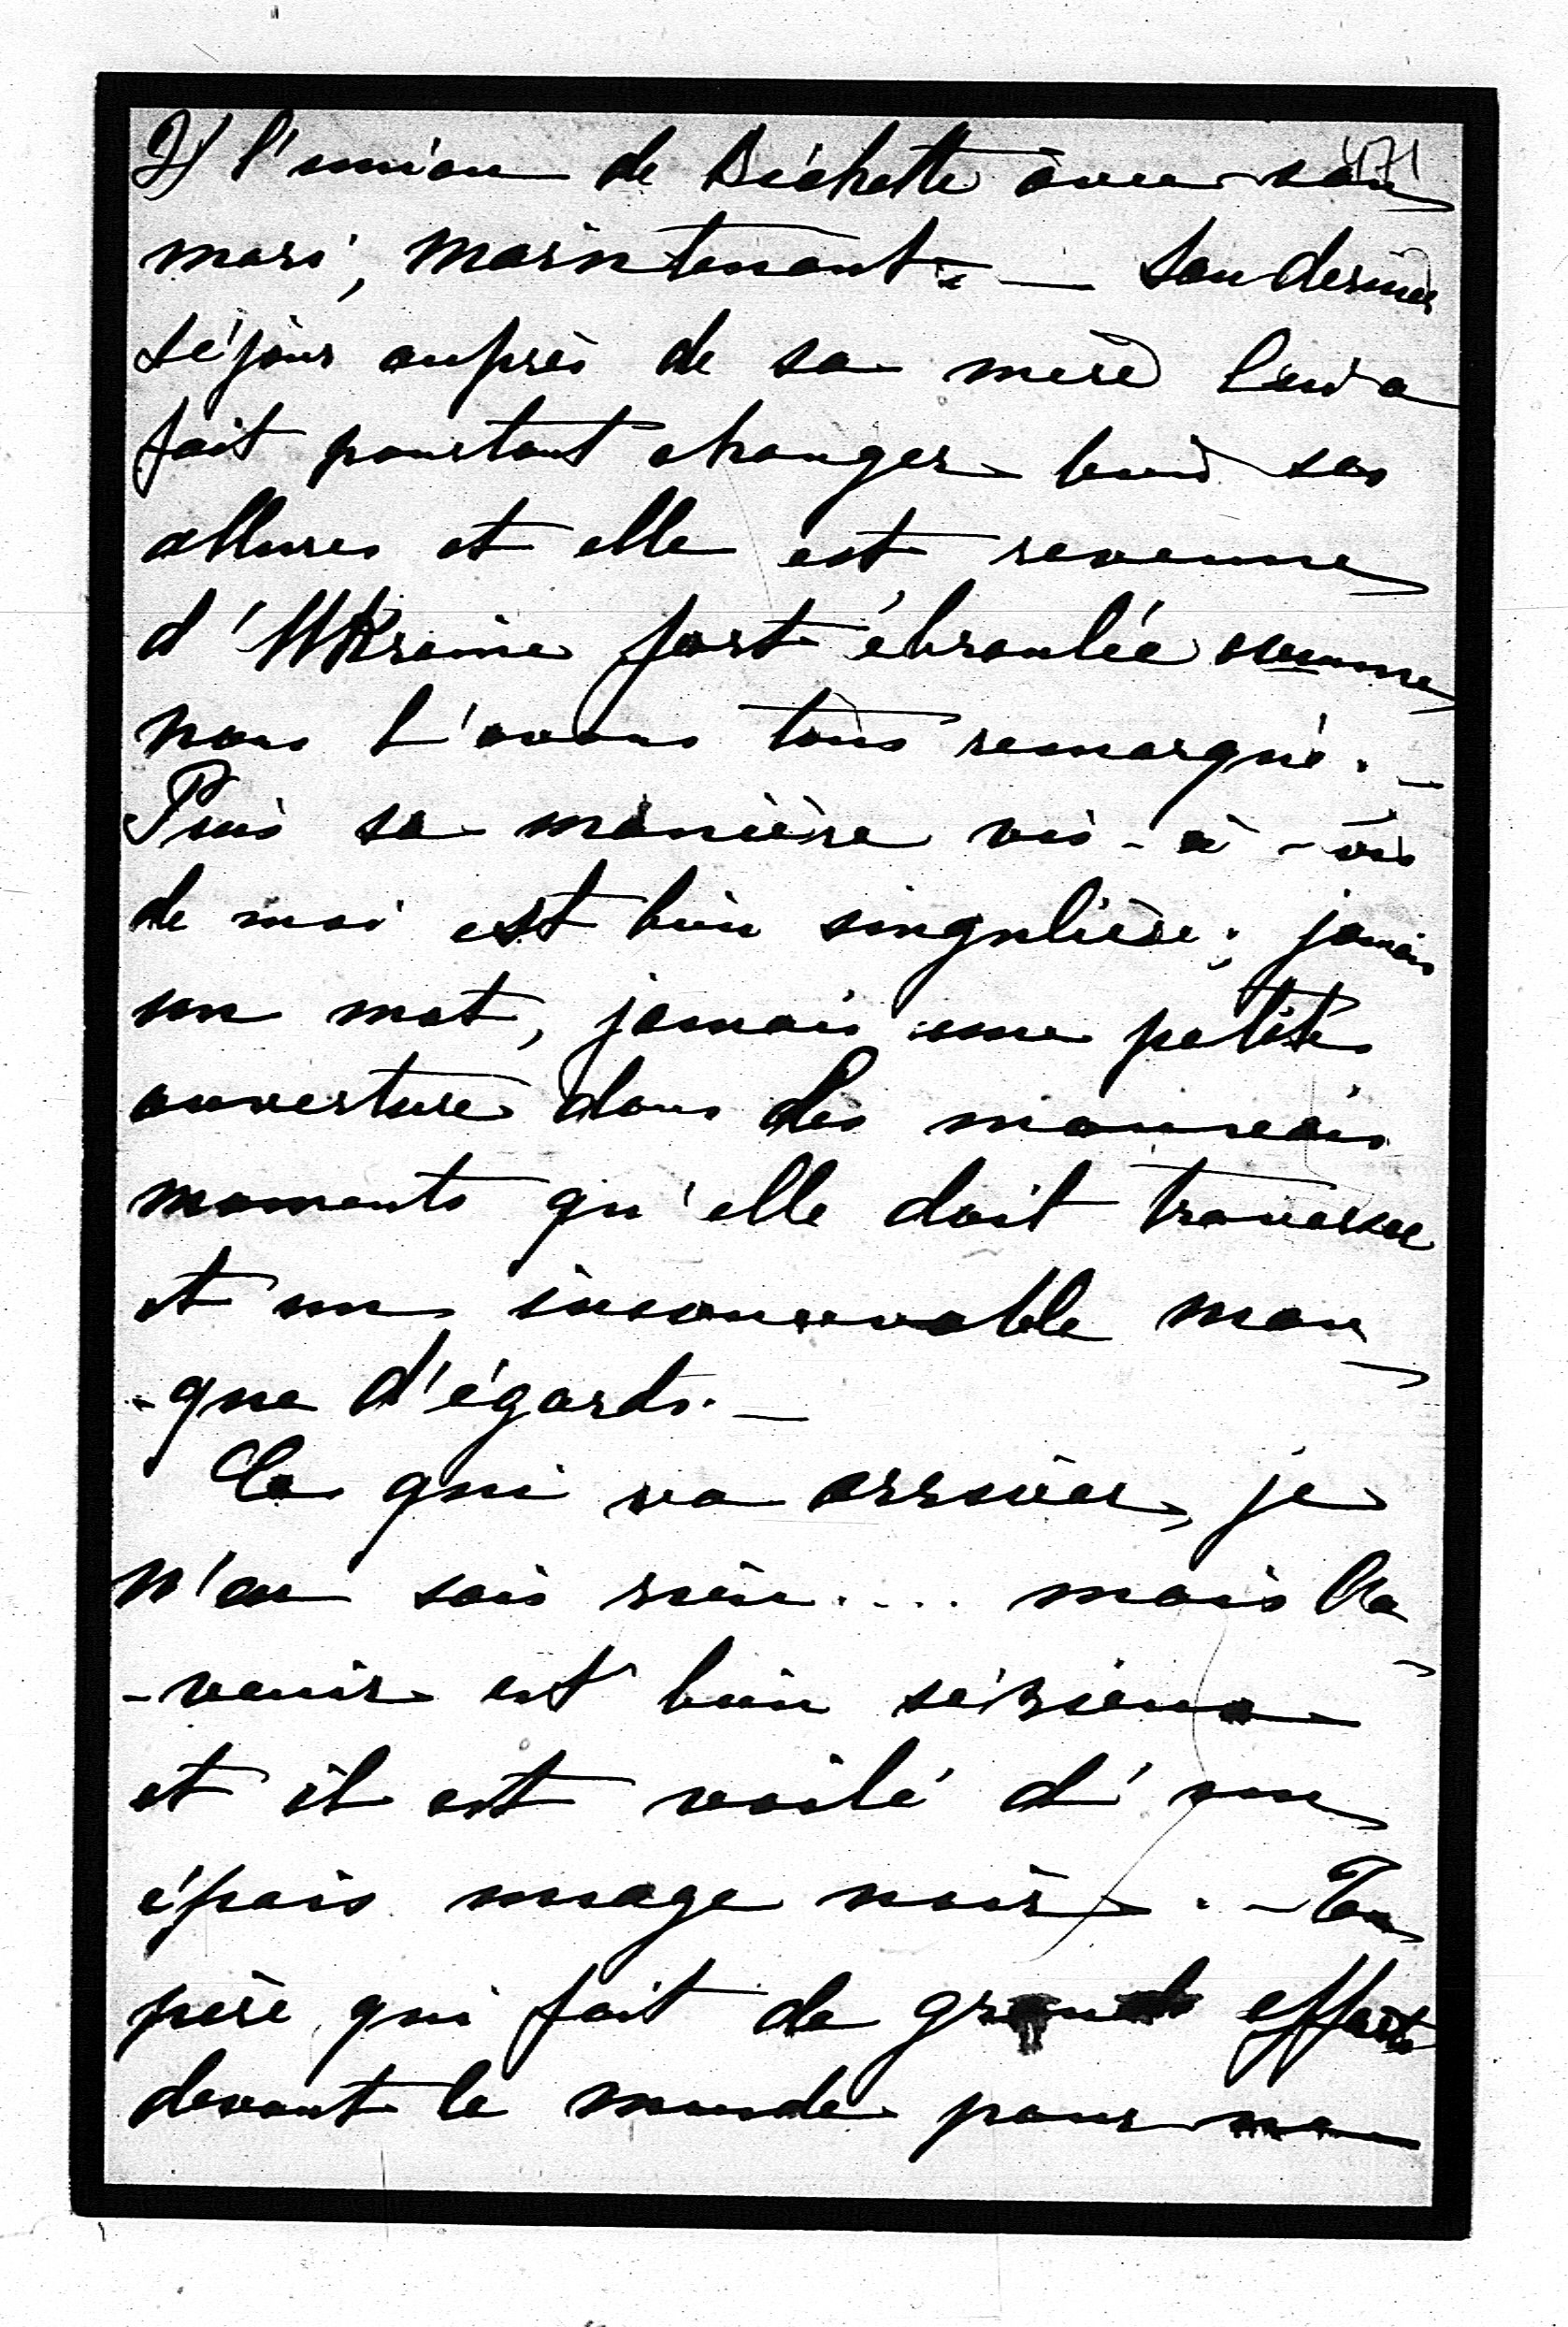 2) l'union de Bichette avec son 471
mari, maintenant. — Son dernier
séjour auprès de sa mère lui a
fait pourtant changer bien ses
allures et elle est revenue
d'Ukraine fort ébranlée comme
nous l'avons tous remarqué. —
Puis sa manière vis-à-vis
de moi est bien singulière; jamais
un mot, jamais une petite
ouverture dans les mauvais
moments qu'elle doit traverser
et un inconcevable man-
-que d'égards. —
Ce qui va arriver, je
n'en sais rien.... mais l'a-
-venir est bien sérieux
et il est voilé d'un
épais nuage noir. — Ton
père qui fait de grands efforts
devant le monde pour ne